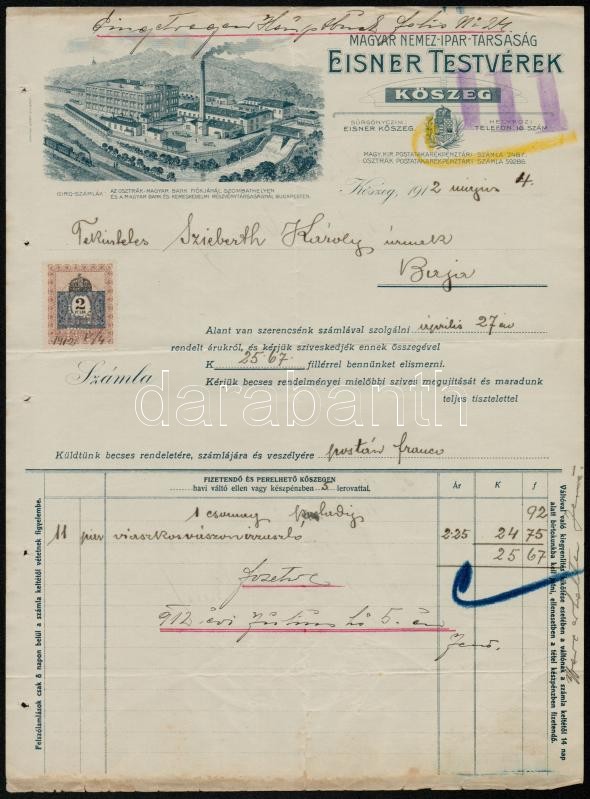 Eingetragen Hauptbuch folio No 24
MAGYAR NEMEZ-IPAR-TÁRSASÁG
EISNER TESTVÉREK
KŐSZEG
SÜRGÖNYCZIM:
EISNER KŐSZEG.
HELYKÖZI
TELEFON: 16 SZÁM
MAGY. KIR. POSTATAKARÉKPÉNZTÁRI SZÁMLA 7467.
OSZTRÁK POSTATAKARÉKPÉNZTÁRI SZÁMLA 59286.
GIRO-SZÁMLÁK
AZ OSZTRÁK-MAGYAR BANK FIÓKJÁNÁL SZOMBATHELYEN
ÉS A MAGYAR BANK ÉS KERESKEDELMI RÉSZVÉNYTÁRSASÁGNÁL BUDAPESTEN.
Kőszeg, 1912 május 4.
Tekintetes Szieberth Károly úrnak
Baja
2
1912
Alant van szerencsénk számlával szolgálni április 27 én
rendelt árukról, és kérjük sziveskedjék ennek összegével
K 25 67 fillérrel bennünket elismerni.
Számla
Kérjük becses rendelményei mielőbbi szíves megujítását és maradunk
teljes tisztelettel
darabanth
Küldtünk becses rendeletére, számlájára és veszélyére postán franco
FIZETENDŐ ÉS PERELHETŐ KŐSZEGEN
havi váltó ellen vagy készpénzben 3 lerovattal.
Ár K f
1 csomag 92
11 pár 2·25 24 75
25 67
fizetve
912 évi Július hó 5. én
Jenő.
Felszólamlások csak 8 napon belül a számla keltétől vétetnek figyelembe.
Váltóval való kiegyenlítés kikötése esetében a váltónak a számla keltétől 14 nap
alatt birtokunkba kell jutni, ellenesetben a tétel készpénzben fizetendő.